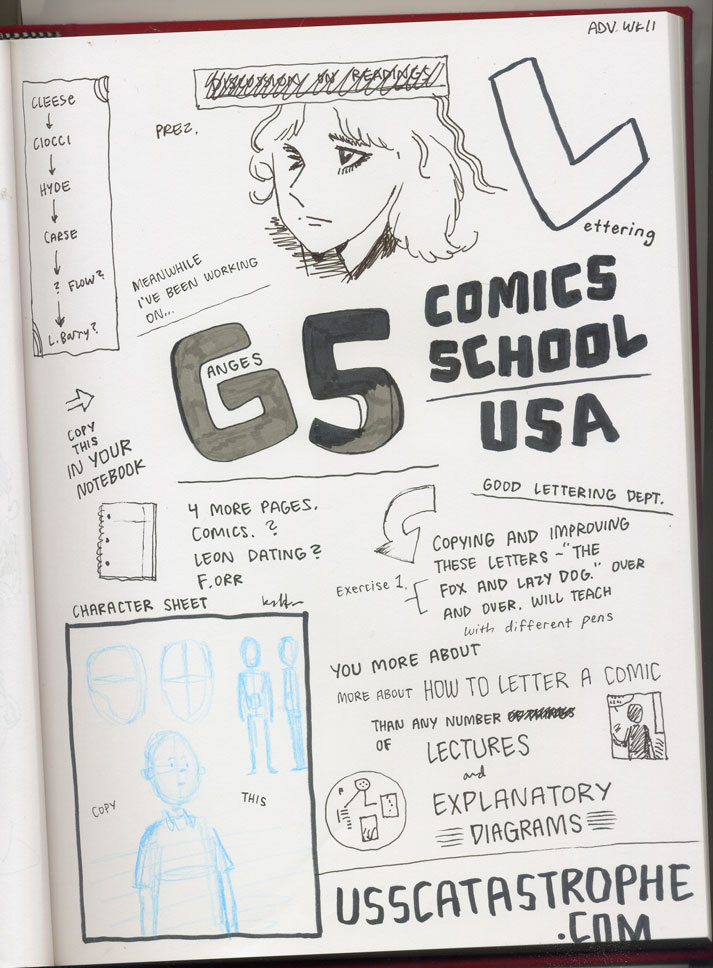 ADV. WK 11
DISCUSSION ON READINGS
CLEESE
CIOCCI
HYDE
CARSE
? FLOW?
L. Barry?
PREZ.
Lettering
MEANWHILE
I'VE BEEN WORKING
ON...
GANGES 5
COMICS
SCHOOL
USA
COPY
THIS
IN YOUR
NOTEBOOK
4 MORE PAGES.
COMICS. ?
LEON DATING?
F. ORR
GOOD LETTERING DEPT.
Exercise 1.
COPYING AND IMPROVING
THESE LETTERS – "THE
FOX AND LAZY DOG." OVER
AND OVER. WILL TEACH
with different pens
YOU MORE ABOUT
MORE ABOUT HOW TO LETTER A COMIC
THAN ANY NUMBER
OF LECTURES
and
EXPLANATORY
DIAGRAMS
CHARACTER SHEET
COPY THIS
USSCATASTROPHE
.COM